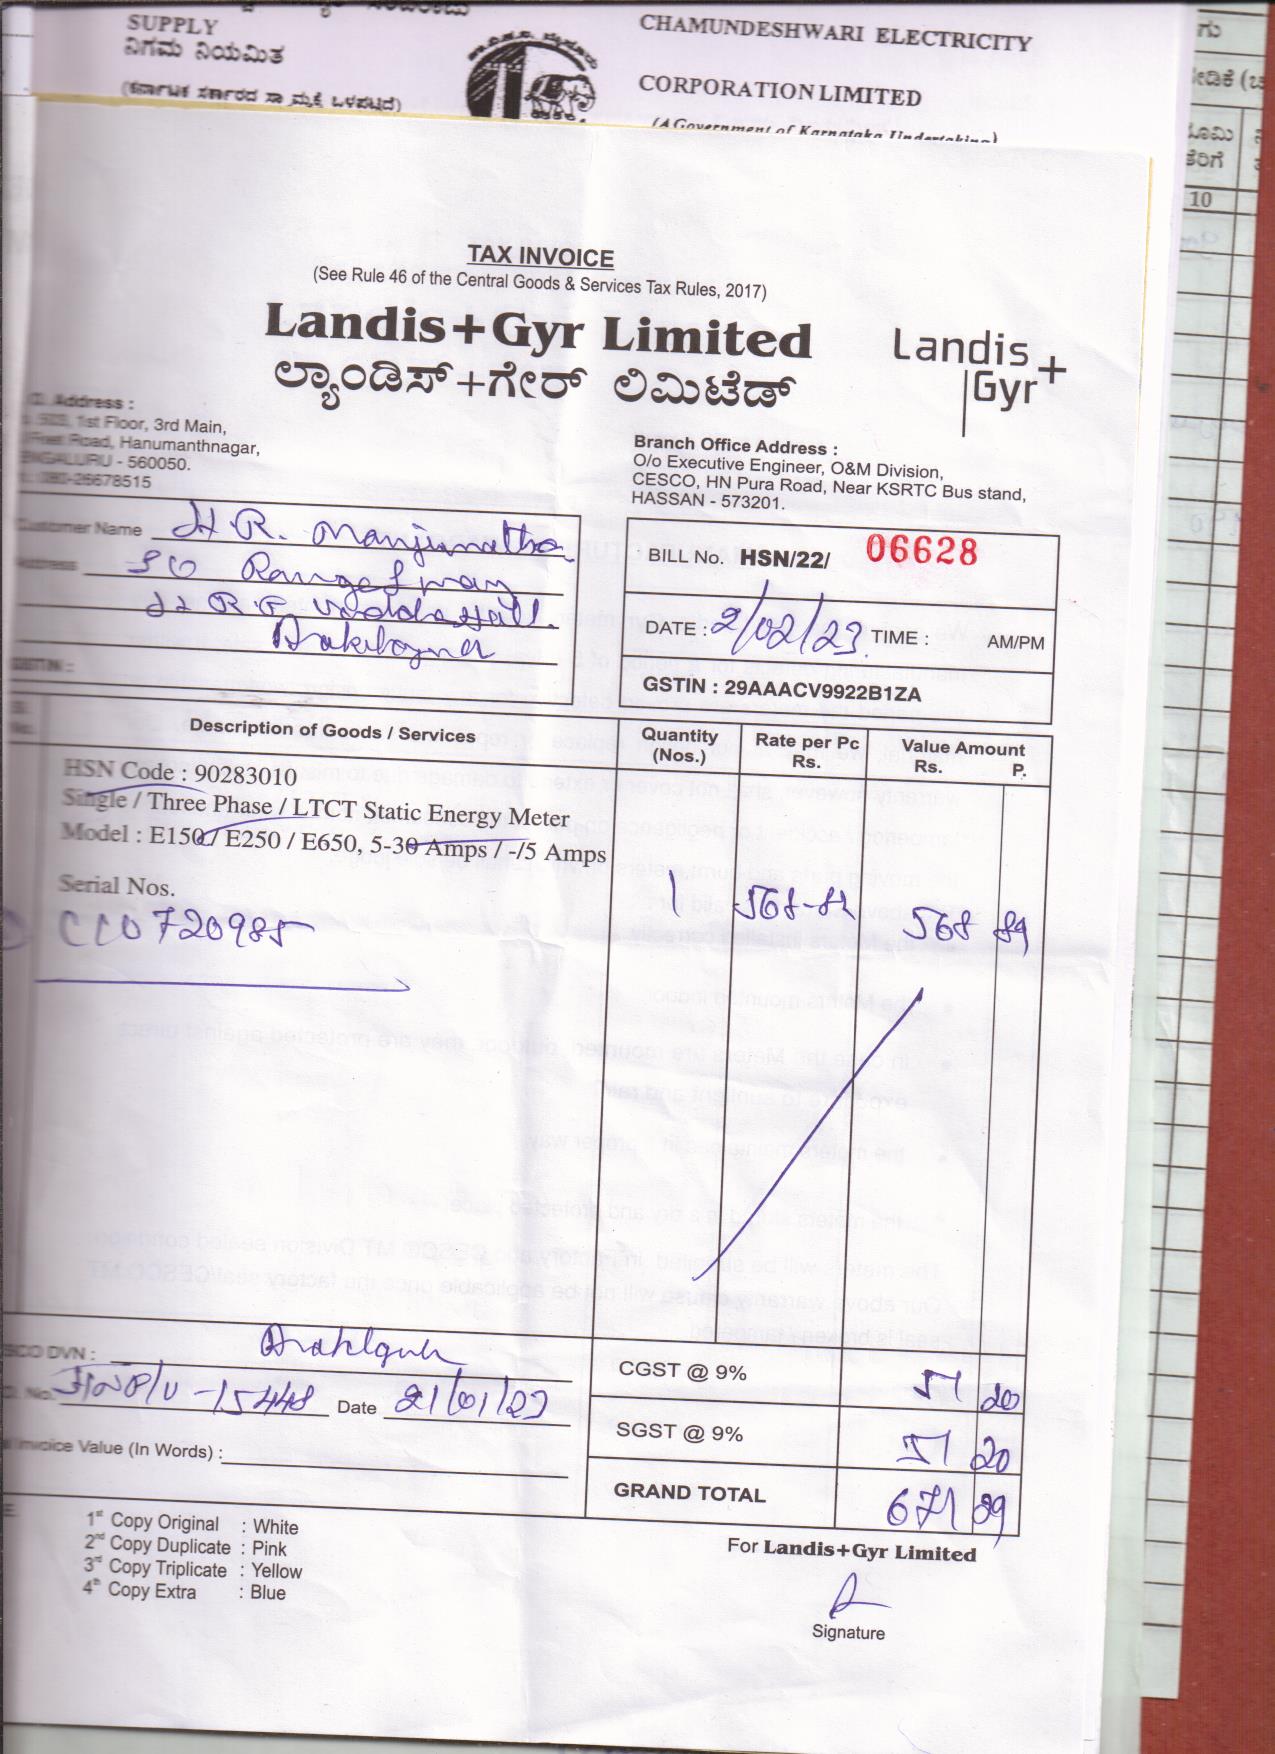 SUPPLY
ನಿಗಮ ನಿಯಮಿತ
(ಕರ್ನಾಟಕ ಸರ್ಕಾರದ ಸ್ವಾಮ್ಯಕ್ಕೆ ಒಳಪಟ್ಟಿದೆ)
CHAMUNDESHWARI ELECTRICITY
CORPORATION LIMITED
(A Government of Karnataka Undertaking)
10
TAX INVOICE
(See Rule 46 of the Central Goods & Services Tax Rules, 2017)
Landis+Gyr Limited
ಲ್ಯಾಂಡಿಸ್+ಗೇರ್ ಲಿಮಿಟೆಡ್
Landis+
Gyr
Address :
1st Floor, 3rd Main,
Road, Hanumanthnagar,
BENGALURU - 560050.
080-26678515
Branch Office Address :
O/o Executive Engineer, O&M Division,
CESCO, HN Pura Road, Near KSRTC Bus stand,
HASSAN - 573201.
Customer Name H.R. Manjunatha
Address S/O
BILL No. HSN/22/ 06628
DATE : 2/02/23 TIME : AM/PM
GSTIN :
GSTIN : 29AAACV9922B1ZA
Sl. No. Description of Goods / Services Quantity (Nos.) Rate per Pc Rs. Value Amount Rs. P.
HSN Code : 90283010
Single / Three Phase / LTCT Static Energy Meter
Model : E150 / E250 / E650, 5-30 Amps / -/5 Amps
Serial Nos.
CC0720985 1 568-89 568 89
CGST @ 9% 51 20
SGST @ 9% 51 20
GRAND TOTAL 671 29
DVN :
No. 15448 Date 21/01/23
Invoice Value (In Words) :
1st Copy Original : White
2nd Copy Duplicate : Pink
3rd Copy Triplicate : Yellow
4th Copy Extra : Blue
For Landis+Gyr Limited
Signature